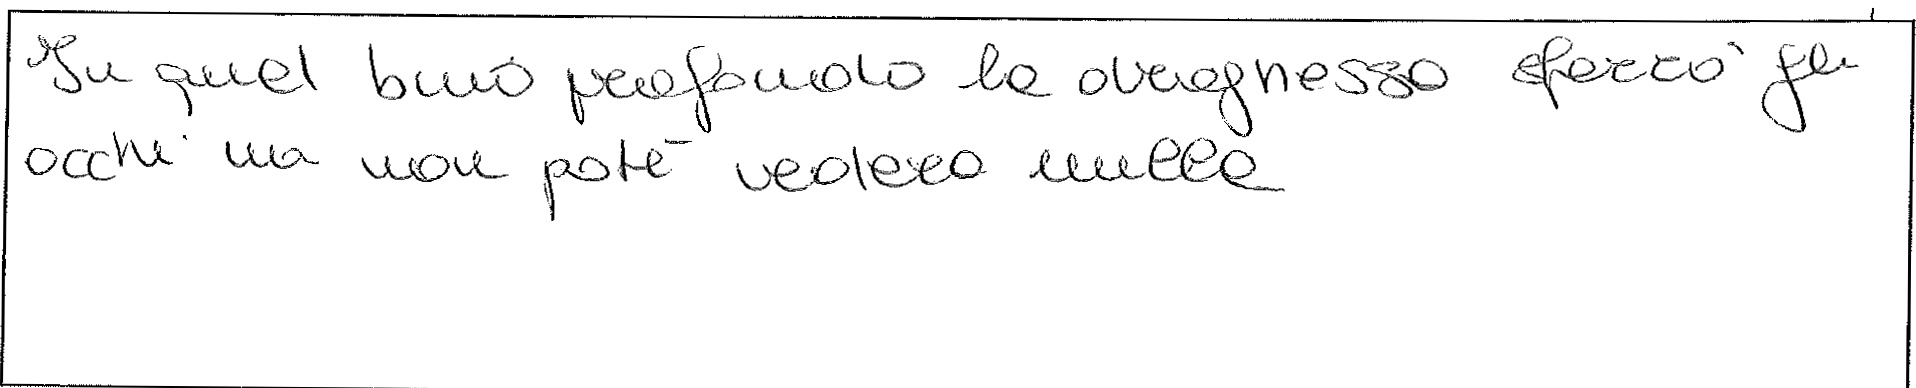 In quel buio profondo la dragnessa sferrò gli
occhi ma non poté vedere nulla